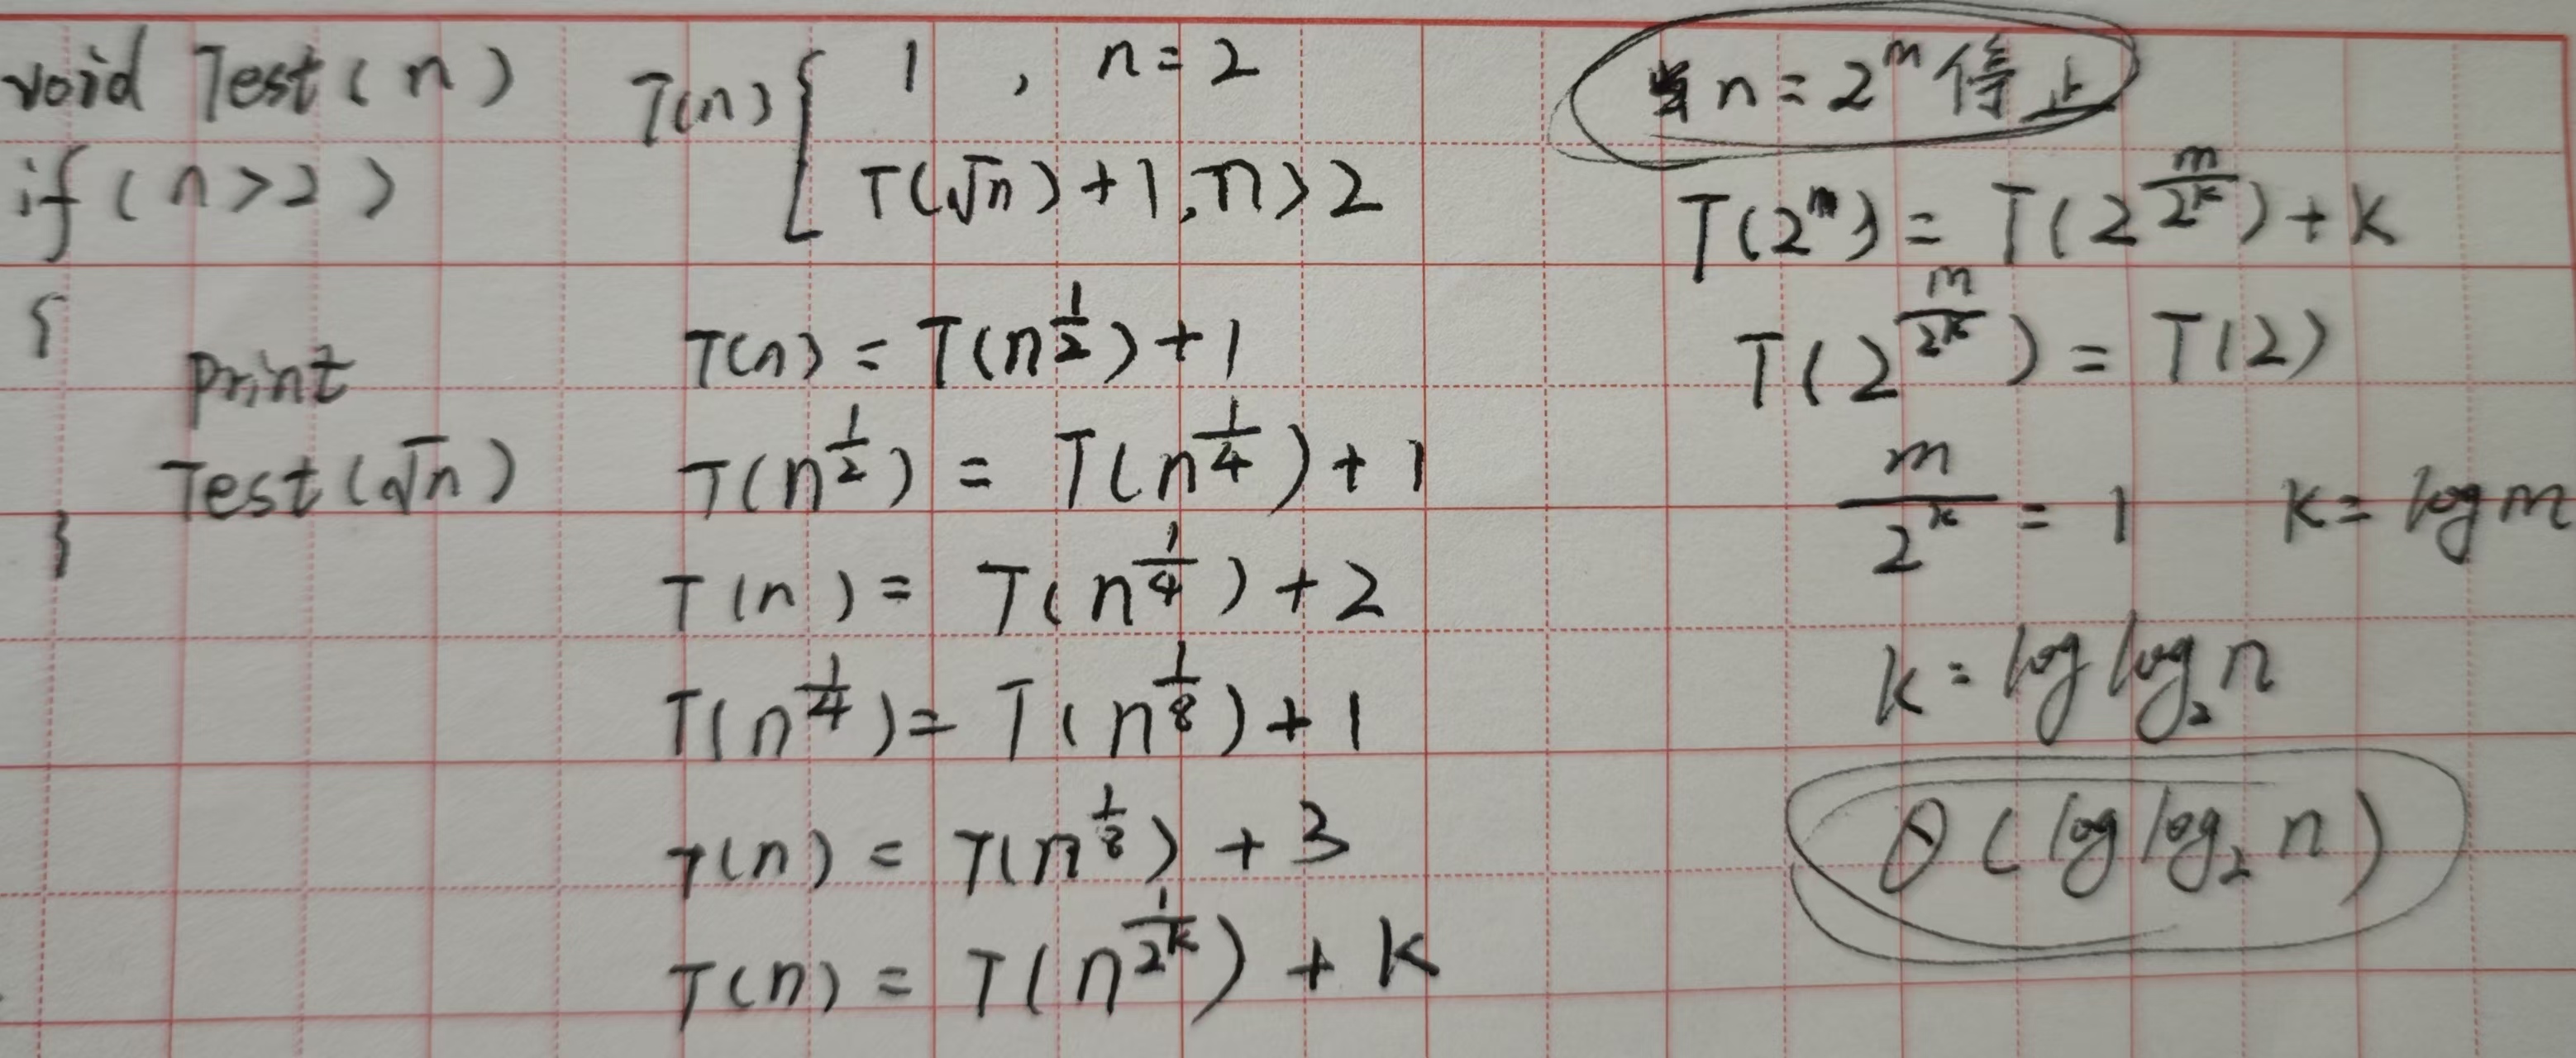 void Test(n)
if(n>2)
{
print
Test(√n)
}
T(n) { 1, n=2
T(√n)+1, n>2
T(n) = T(n^(1/2))+1
T(n^(1/2)) = T(n^(1/4))+1
T(n) = T(n^(1/4))+2
T(n^(1/4)) = T(n^(1/8))+1
T(n) = T(n^(1/8))+3
T(n) = T(n^(1/2^k))+k
当n=2^m停止
T(2^m) = T(2^(m/2^k))+k
T(2^(m/2^k)) = T(2)
m/2^k = 1 k=log m
k=log log₂n
θ(log log₂n)